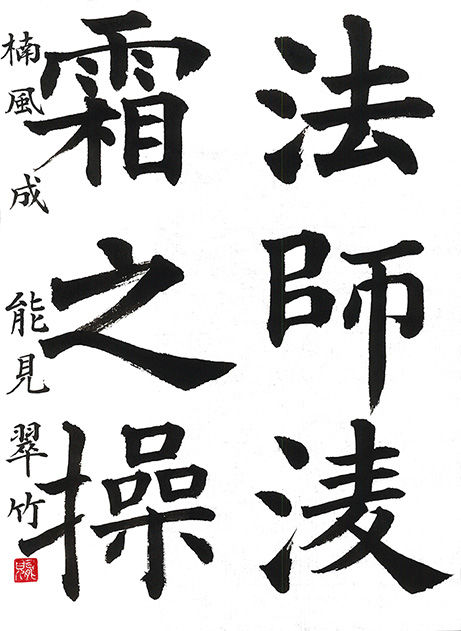 法師淩
霜之操
楠風成 能見翠竹